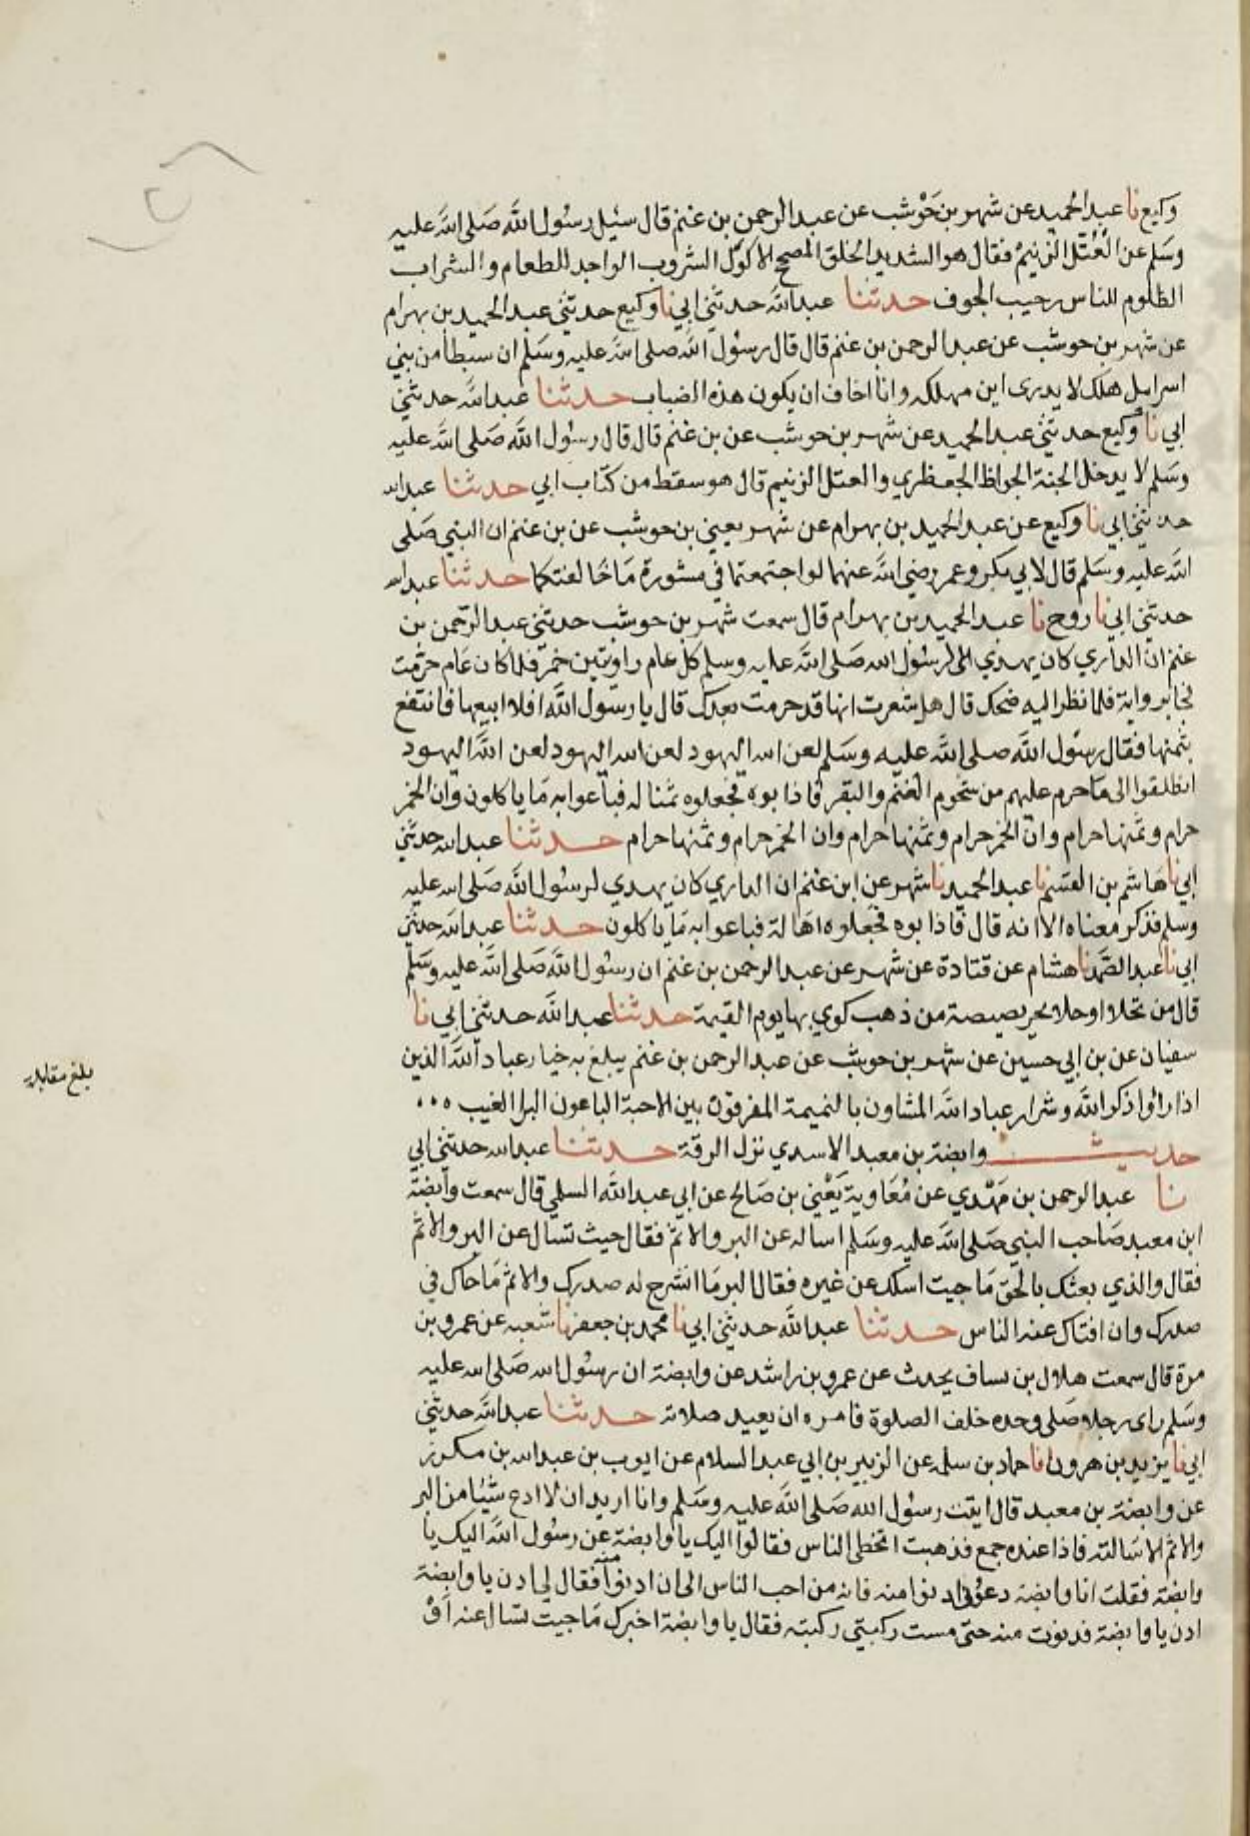 وكيع نا عبد الحميد عن شهر بن حَوْشب عن عبد الرحمن بن غنم قال سئل رسول الله صَلى الله عليه
وسَلم عن العُتُل الزنيم فقال هو الشديد الخلق المصح الاكول الشروب الواجد للطعام والشراب
الظلوم للناس رحيب الجوف حدثنا عبد الله حدثني ابي نا وكيع حدثني عبد الحميد بن بهرام
عن شهر بن حوشب عن عبد الرحمن بن غنم قال قال رسول الله صلى الله عليه وسَلم ان سبطا من بني
اسرايل هلك لا يدرى اين مهلكه وانا اخاف ان يكون هذه الضباب حدثنا عبد الله حدثني
ابي نا وكيع حدثني عبد الحميد عن شهر بن حوشب عن بن غنم قال قال رسول الله صَلى الله عليه
وسَلم لا يدخل الجنة الجواظ الجعظري والعتل الزنيم قال هو سقط من كتاب ابي حدثنا عبد الله
حدثني ابي نا وكيع عن عبد الحميد بن بهرام عن شهر يعني بن حوشب عن بن غنم ان النبي صَلى
الله عليه وسَلم قال لابي بكر وعمر رضي الله عنهما لو اجتمعتما في مشورة مَا خالفتكما حدثنا عبد الله
حدثني ابي نا روح نا عبد الحميد بن بهرام قال سمعت شهر بن حوشب حدثني عبد الرحمن بن
غنم ان الداري كان يهدي الى لرسول الله صَلى الله عليه وسلم كل عام راويتين خمر فلما كان عَام حرّمت
فجا براوية فلما نظر اليه ضحك قال هل شعرت انها قد حرمت بعدك قال يا رسول الله افلا ابيعها فانتفع
بثمنها فقال رسول الله صلى الله عليه وسَلم لعن الله اليهود لعن الله اليهود لعن الله اليهود
انطلقوا الى مَا حرم عليهم من شحوم الغنم والبقر فاذابوه فجعلوه ثمنا له فباعوا به مَا ياكلون وان الخمر
حرام وثمنها حرام وان الخمر حرام وثمنها حرام وان الخمر حرام وثمنها حرام حدثنا عبد الله حدثني
ابي نا هَاشم بن القسم نا عبد الحميد نا شهر عن ابن غنم ان الداري كان يهدي لرسول الله صَلى الله عليه
وسلم فذكر معناه الا انه قال فاذابوه فجَعلوه اهَالة فباعوا به مَا ياكلون حدثنا عبد الله حدثني
ابي نا عبد الصَّمد نا هشام عن قتادة عن شهر عن عبد الرحمن بن غنم ان رسول الله صَلى الله عليه وسَلم
قال من تحلا او حلا بخربصيصة من ذهب كوي بها يوم القيمة حدثنا عبد الله حدثني ابي نا
سفيان عن بن ابي حسين عن شهر بن حوشب عن عبد الرحمن بن غنم يبلغ به خيار عباد الله الذين
اذا راوا ذكر الله وشرار عباد الله المشاون بالنميمة المفرقون بين الاحبة الباعون البرا الغيب ه
بلغ مقابلة
حديث وابضة بن معبد الاسدي نزل الرقة حدثنا عبد الله حدثني ابي
نا عبد الرحمن بن مَهْدي عن مُعَاوية يَعْني بن صَالح عن ابي عبد الله السلمي قال سمعت وابضة
ابن معبد صَاحب النبي صَلى الله عليه وسَلم اساله عن البر والاثم فقال جيت تسال عن البر والاثم
فقال والذي بعثك بالحق مَا جيت اسلك عن غيره فقال البر مَا انشرح له صدرك والاثم مَا حاك في
صدرك وان افتاك عنه الناس حدثنا عبد الله حدثني ابي نا محمد بن جعفر نا شعبه عن عمرو بن
مرة قال سمعت هلال بن يساف يحدث عن عمرو بن راشد عن وابضة ان رسول الله صَلى الله عليه
وسَلم راى رجلا صَلى وحده خلف الصلوة فامره ان يعيد صلاته حدثنا عبد الله حدثني
ابي نا يزيد بن هرون انا حماد بن سلمه عن الزبير بن ابي عبد السلام عن ايوب بن عبد الله بن مكرز
عن وابضة بن معبد قال اتيت رسول الله صَلى الله عليه وسَلم وانا اريد ان لا ادع شيئا من البر
والاثم الا سَالته فاذا عنده جمع فذهبت اتخطى الناس فقالوا اليك يا وابضة عن رسول الله اليك يا
وابضة فقلت انا وابضة دعوني ادنوا منه فانه من احب الناس الى ان ادنوا منه فقال لي ادن يا وابضة
ادن يا وابضة فدنوت منه حتى مست ركبتي ركبته فقال يا وابضة اخبرك مَا جيت تسال عنه اَوْ